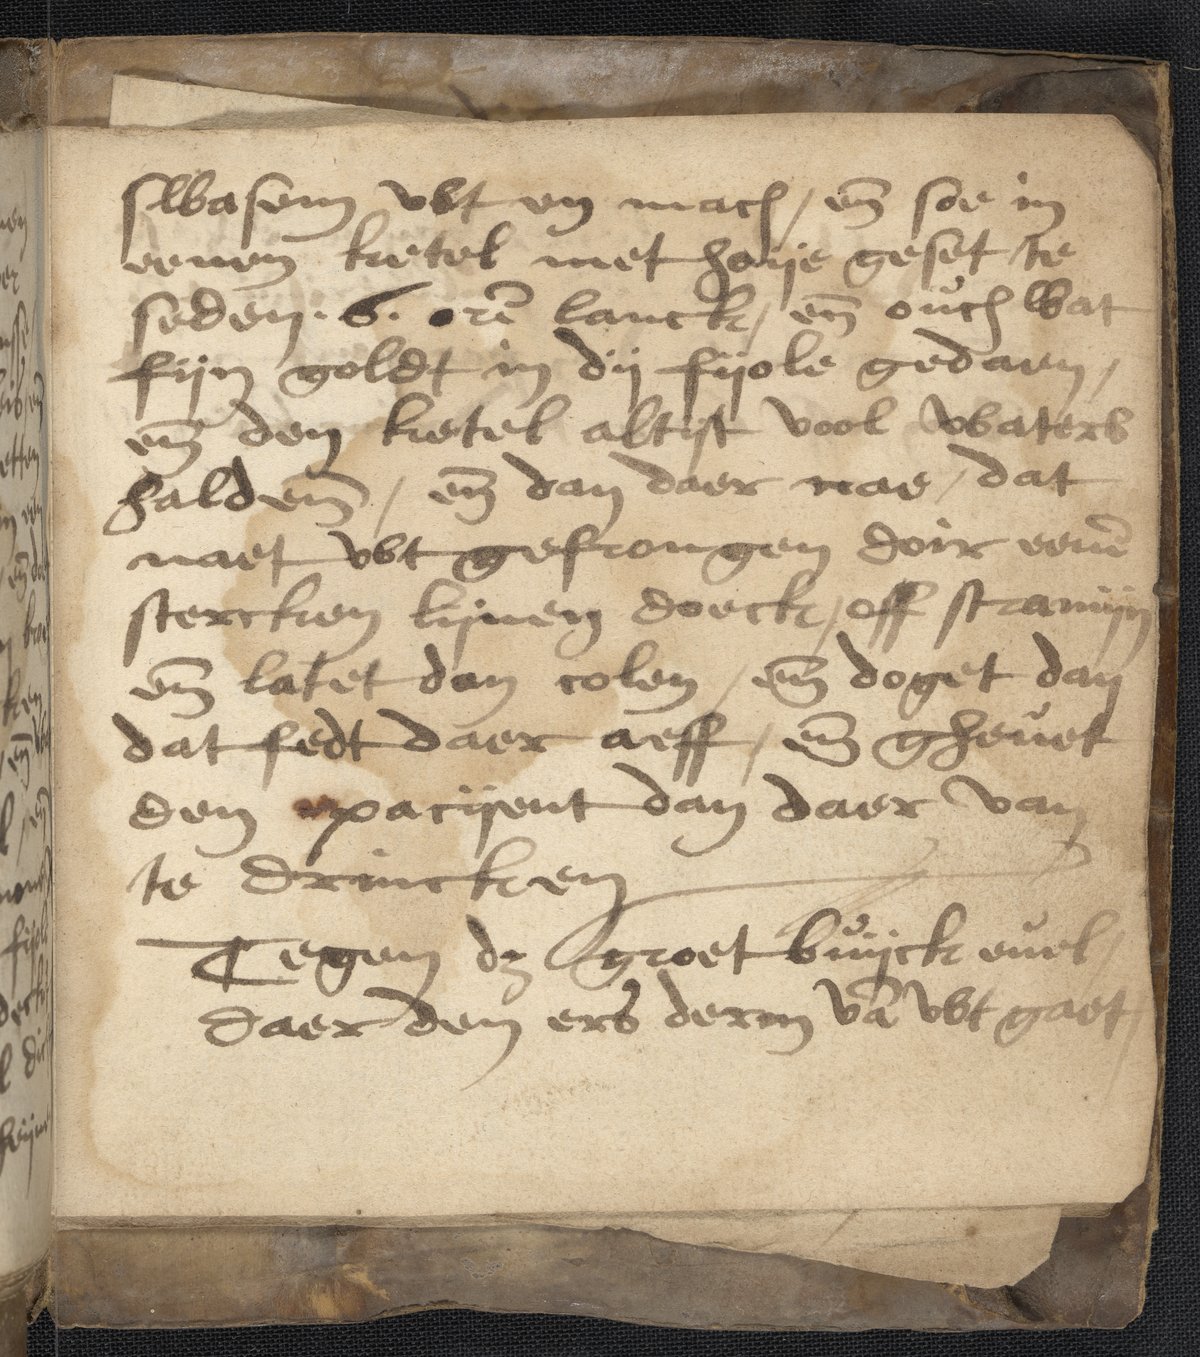 swasem wt en mach / en̄ soe in
eenen ketel met hoije geset te
seden . 6 . orē lanck / en̄ ouch wat
fijn goldt in dij fijole gedaen /
en̄ den ketel altijt vool waters
halden̄ / en̄ dan daer nae / dat
naet wt gefrongen doir eenē
stercken lijnen doeck / off stramijn
en̄ latet dan colen / en̄ doget dan
dat fedt daer aeff / en̄ gheuet
den pacijent dan daer van
te drincken
Tegen dz groet buijck euel /
daer den ers derm vā wt gaet /